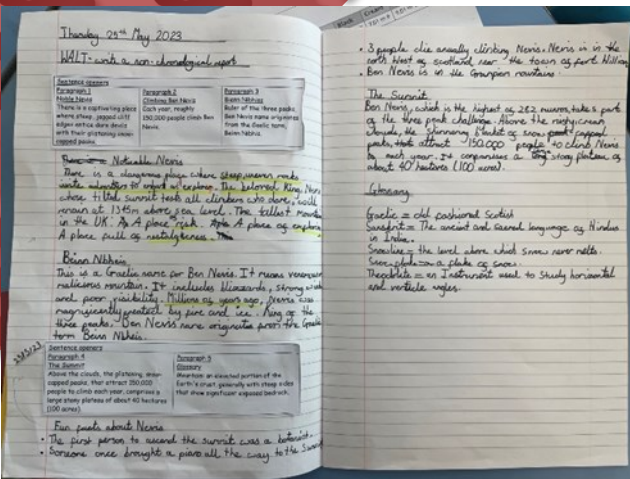 Thursday 25th May 2023
WALT - write a non-chronological report
Sentence openers
Paragraph 1
Noble Nevis
There is a captivating place
where steep, jagged cliff
edges entice dare devils
with their glistening snow-
capped peaks.
Paragraph 2
Climbing Ben Nevis
Each year, roughly
150,000 people climb Ben
Nevis.
Paragraph 3
Beinn Nibheis
Ruler of the three peaks,
Ben Nevis name originates
from the Gaelic term,
Beinn Nibheis.
Noticable Nevis
There is a dangerous place where steep, uneven rocks
invite adventers to explore. The beloved King, Nevis
whose tilted summit tests all climbers who dare, will
remain at 1345m above sea level. The tallest mountain
in the UK. A place risk. A place of
A place full of
Beinn Nbheis
This is a Graelic name for Ben Nevis. It means venemous
malicious mountain. It includes blizzards, strong
and poor visibility. Millions of years ago, Nevis was
magnificently created by fire and ice. King of the
three peaks. Ben Nevis name originates from the Gaelic
term Beinn Nbheis.
Sentence openers
Paragraph 4
The Summit
Above the clouds, the glistening, snow-
capped peaks, that attract 150,000
people to climb each year, comprises a
large stony plateau of about 40 hectares
(100 acres).
Paragraph 5
Glossary
Mountain: an elevated portion of the
Earth's crust, generally with steep sides
that show significant exposed bedrock.
Fun facts about Nevis
• The first person to ascend the summit was a botanist.
• Someone once brought a piano all the way to the Summit
• 3 people die annually climbing Nevis. Nevis is in the
north West of scotland near the town of fort William
• Ben Nevis is in the Grampian mountains.
The Summit
Ben Nevis, which is the highest of 282 munros, takes part
of the three peak challenge. Above the misty,
clouds, the shimmering blanket of snow capped
peaks, that attract 150,000 people to climb Nevis
each year. It comprises a stony plateau of
about 40 hectares (100 acres).
Glossary
Gaelic = old fashioned Scotish
Sanskrit = The ancient and sacred language of Hindus
in India.
Snowline = the level above which snow never melts.
Snowflake = a flake of snow.
Theodolite = an Instrument used to study horizontal
and verticle angles.